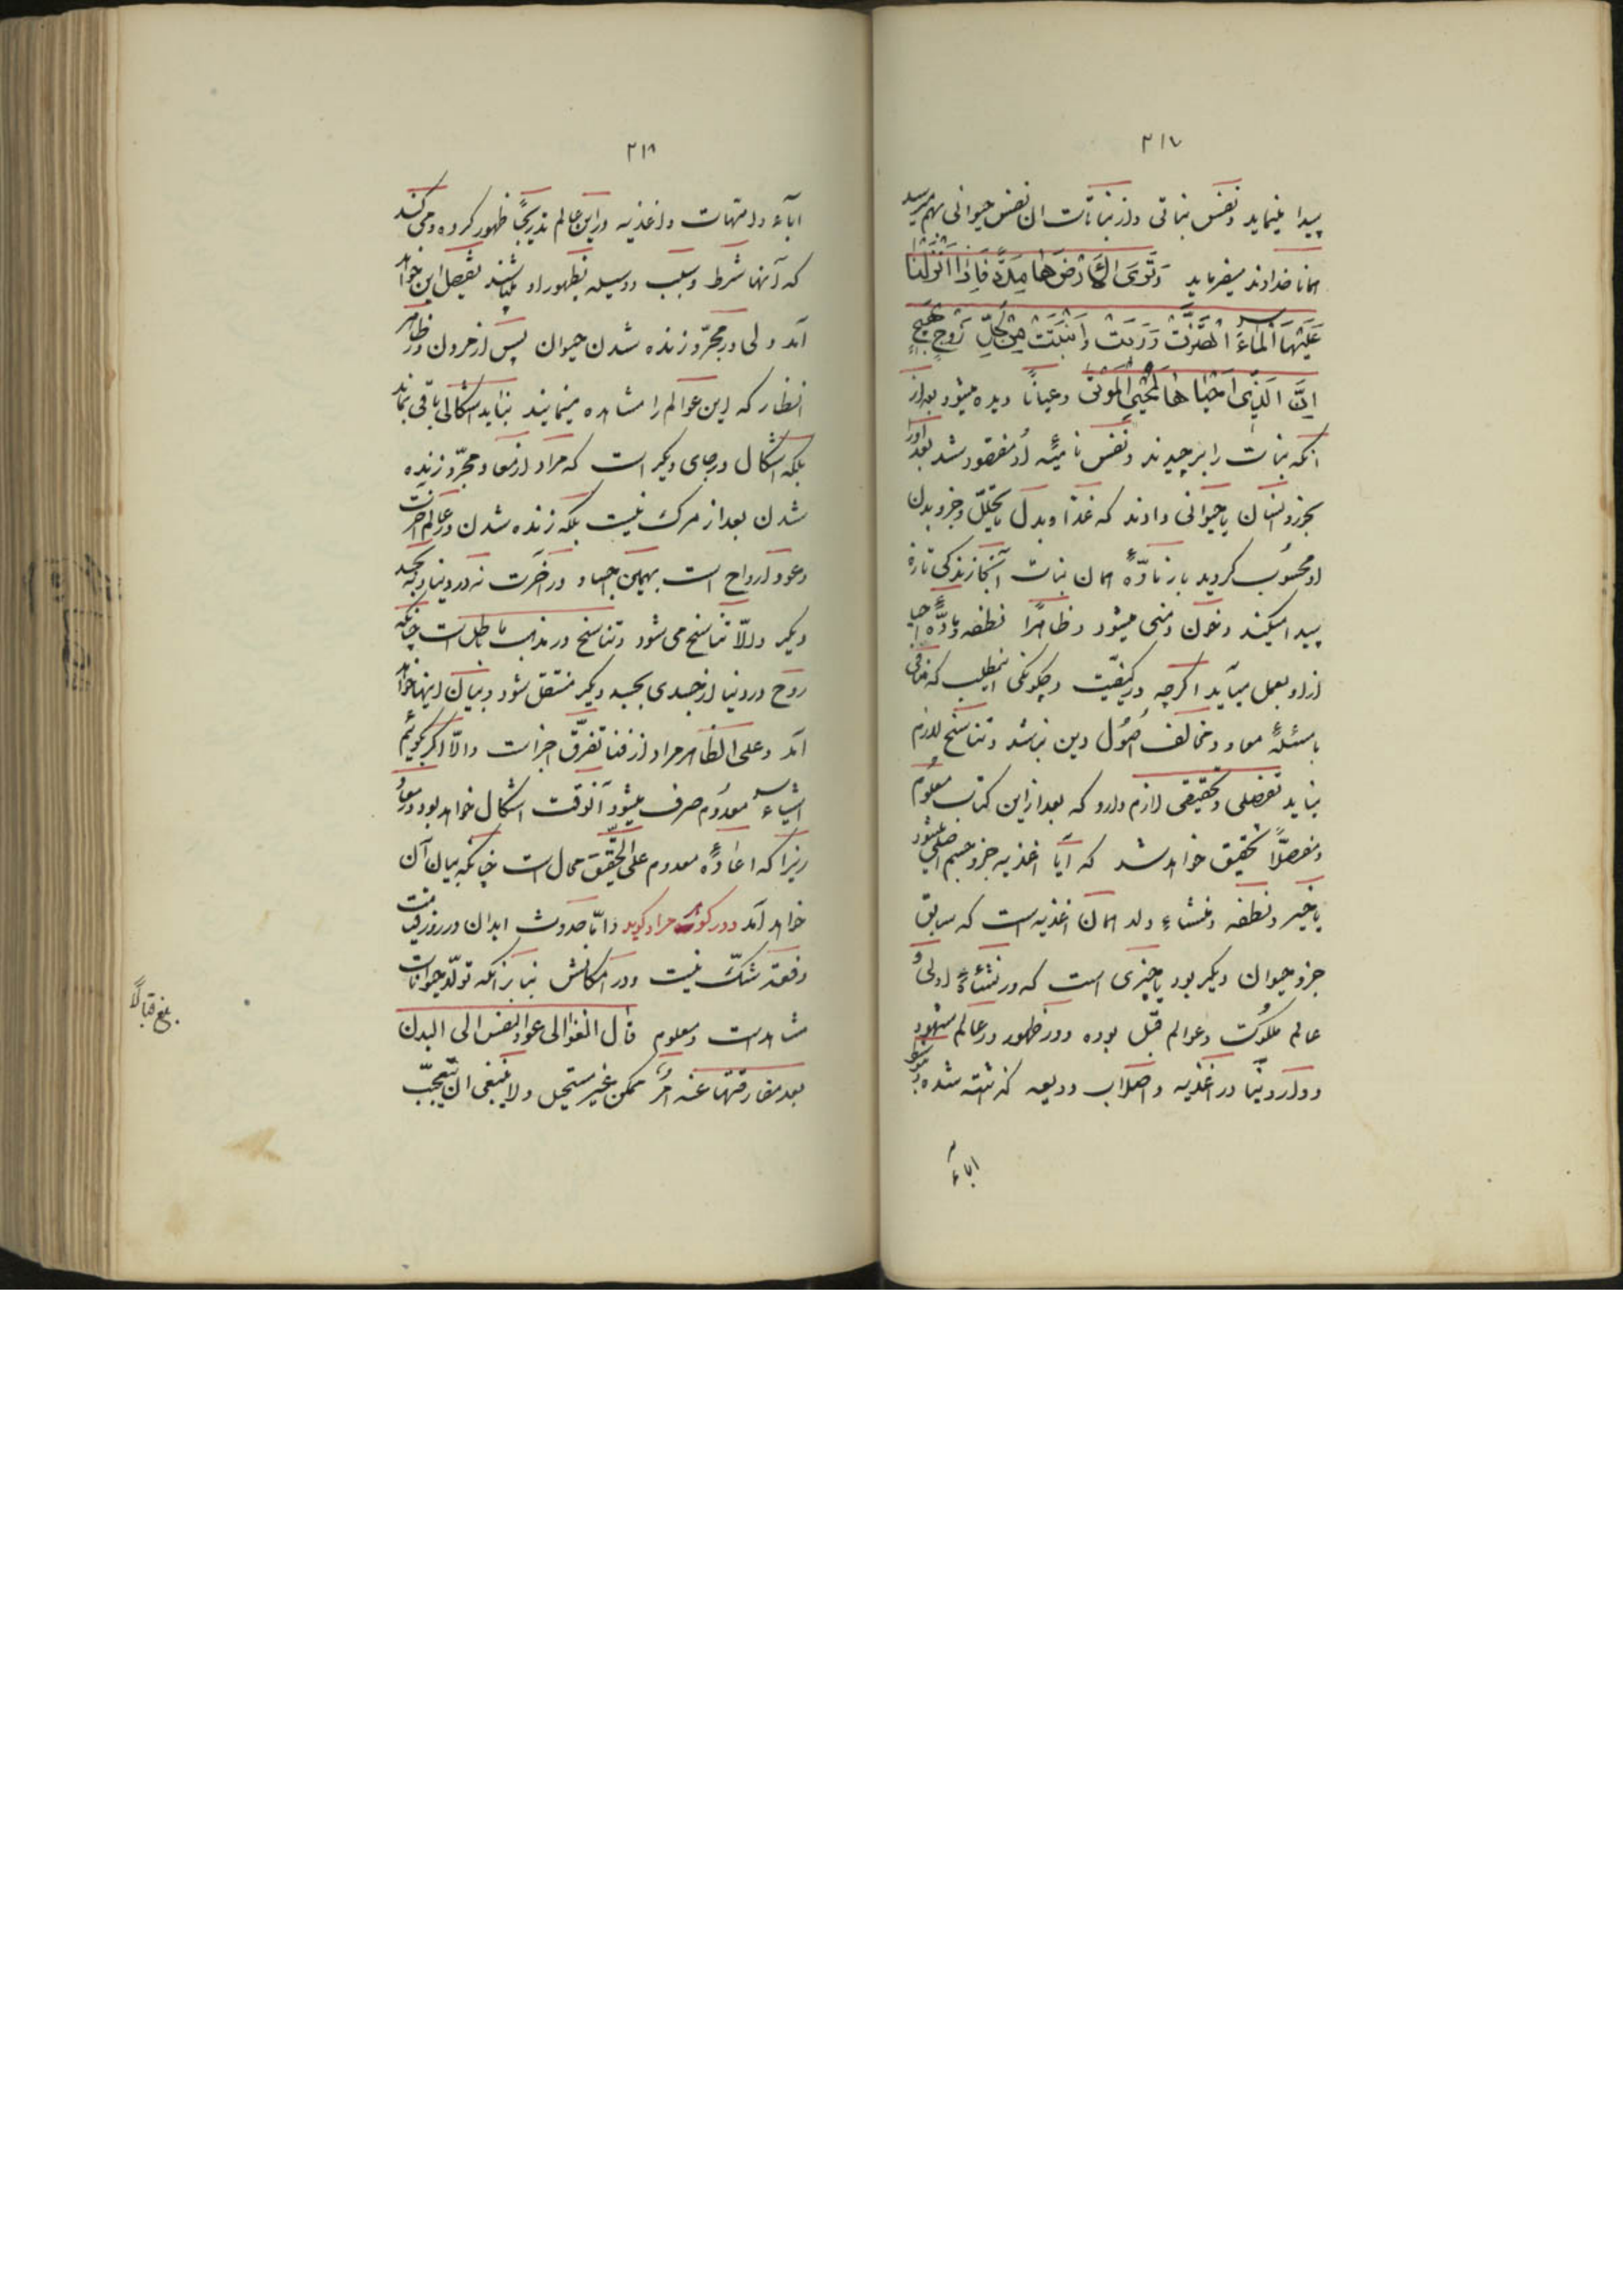 ۳۱۷
پیدا مینماید و نفس نباتی و از نباتات ان نفس حیوانی بهم میرسد
همانا خداوند میفرماید وَتَرَی الْاَرْضَ هَامِدَةً فَاِذَا اَنْزَلْنَا
عَلَیْهَا الْمَاءَ اهْتَزَّتْ وَرَبَتْ وَاَنْبَتَتْ مِنْ کُلِّ زَوْجٍ بَهِیجٍ
اِنَّ الَّذِی اَحْیَاهَا لَمُحْیِی الْمَوْتَی و عیاناً دیده میشود بعد از
انکه نبات را برچیدند و نفس نامیّهٔ او مفقود شد بعد او را
بخورد انسان یا حیوانی دادند که غذا و بدل ما یتحلّل و جزو بدن
او محسوب کردید باز مادّهٔ همان نبات آنجا زندکی تازه
پیدا میکند و خون و منی میشود و ظاهراً نطفه و مادّهٔ حیات
از او بعمل میآید اکرچه در کیفیّت و چکونکی اینمطلب که منافی
با مسئلهٔ معاد و مخالف اصُول دین نباشد و تناسخ لازم
نیاید تفصیلی و تحقیقی لازم دارد که بعد از این کتاب معلوم
و مفصلاً تحقیق خواهد شد که آیا اغذیه جزو جسم اصلی میشود
یا خیر و نطفه و منشاء ولد همان اغذیه است که سابق
جزو حیوان دیکر بود یا چیزی است که در نشئاهٔ اولی و
عالم ملکوت و عوالم قبل بوده و در ظهور در عالم شهود
و دار دنیا در اغذیه و اصلاب ودیعه کذاشته شده و بتوسط
اباء
۳۱۸
اباء و امّهات و اغذیه در این عالم تدریجاً ظهور کرده و می کند
که آنها شرط و سبب و وسیله بظهور او میباشند تفصیل این خواهد
آمد ولی در مجرّد زنده شدن حیوان پس از مردن در ظاهر
انظار که این عوالم را مشاهده مینمایند نباید اشکالی باقی بماند
بلکه اشکال در جای دیکر است که مراد از معاد مجرّد زنده
شدن بعد از مرک نیست بلکه زنده شدن در عالم اخرت
و عود ارواح است بهمین اجساد در اخرت نه در دنیا و به جسد
دیکر والّا تناسخ می شود و تناسخ در مذهب ما باطل است چنانکه
روح در دنیا از جسدی بجسد دیکر منتقل شود و بیان اینها خواهد
آمد و علی الظاهر مراد از فنا تفرّق اجزاست والّا اکر کوئیم
اشیاء معدُوم صرف میشود آنوقت اشکال خواهد بود در معاد
زیرا که اعادهٔ معدوم علی التّحقیق محال است چنانکه بیان آن
خواهد آمد و در کوهر مراد کوید و امّا حدوث ابدان در روز قیامت
دفعةً شکّ نیست و در امکانش بنابر آنکه تولّد حیوانات
مشاهد است و معلوم قال الغزالی عود النفس الی البدن
بعد مفارقتها عنه امرٌ ممکن غیر مستحیل و لا ینبغی ان یتعجّب
بلغ قبالاً